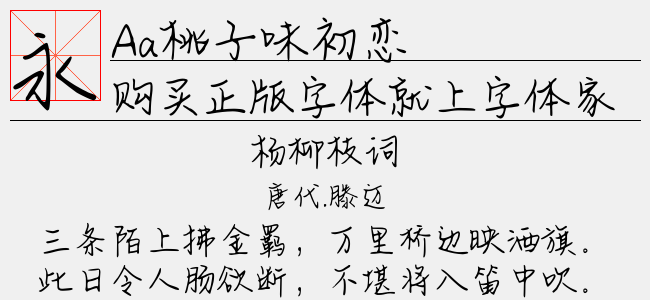 永
Aa桃子味初恋
购买正版字体就上字体家
杨柳枝词
唐代.滕迈
三条陌上拂金羁，万里桥边映酒旗。
此日令人肠欲断，不堪将入笛中吹。